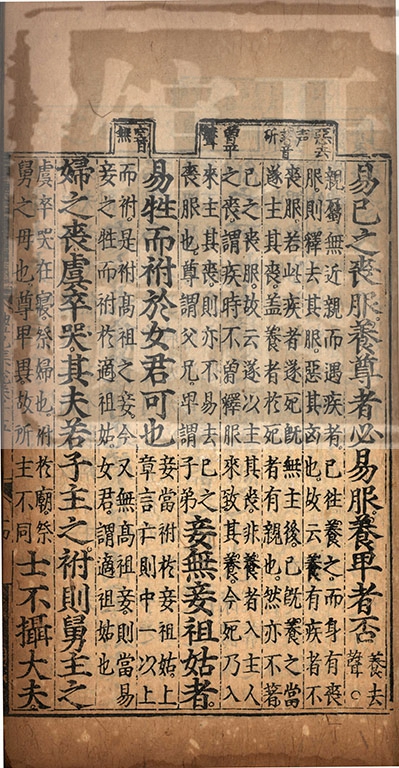 惡去
声
曾平
聲
易己之喪服養尊者必易服養卑者否養去
聲○
親屬無近親而遇疾者己往養之而身有喪
服則釋去其服惡其凶也故云養有疾者不
喪服若此疾者遂死旣無主後己旣養之當
遂主其喪蓋養者於死者有親也然亦不著
己之喪服故云遂以主其喪非養者入主人
之喪謂疾時不曾釋服來致其養今死乃入
來主其喪則亦不易去己之
喪服也尊謂父兄卑謂子弟
妾無妾祖姑者
易牲而祔於女君可也
妾當祔於妾祖姑上
章言亡則中一以上
而祔是祔高祖之妾今又無高祖妾則當易
妾之牲而祔於適祖姑女君謂適祖姑也
婦之喪虞卒哭其夫若子主之祔則舅主之
虞卒哭在寢祭婦也祔於廟祭
舅之母也尊卑異故所主不同
士不攝大夫